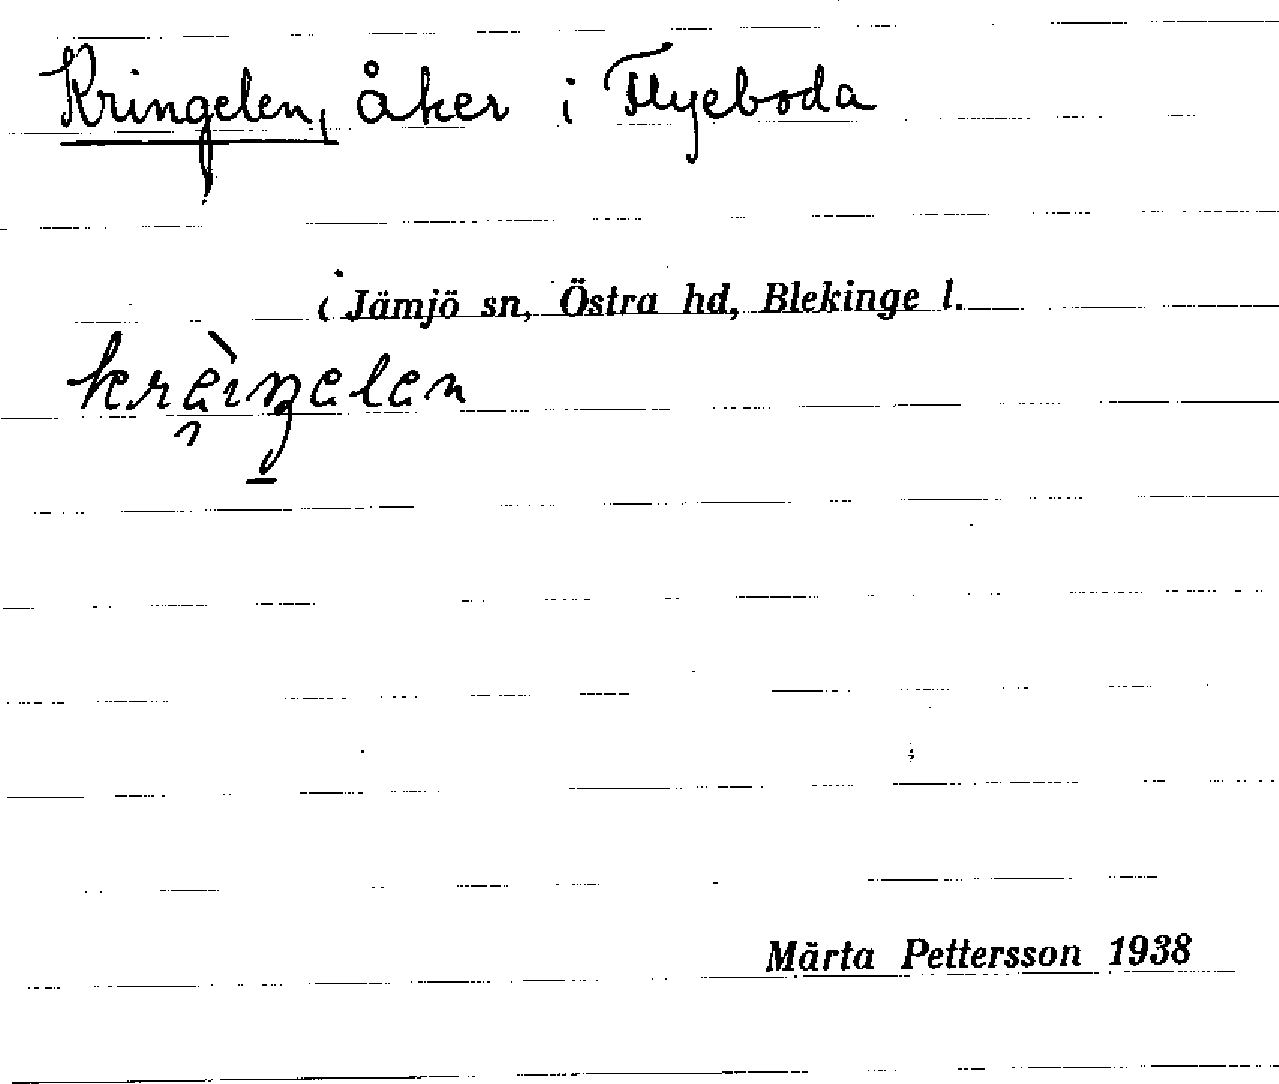 Kringelen, åker i Flyeboda
i Jämjö sn, Östra hd, Blekinge l.
Märta Pettersson 1938